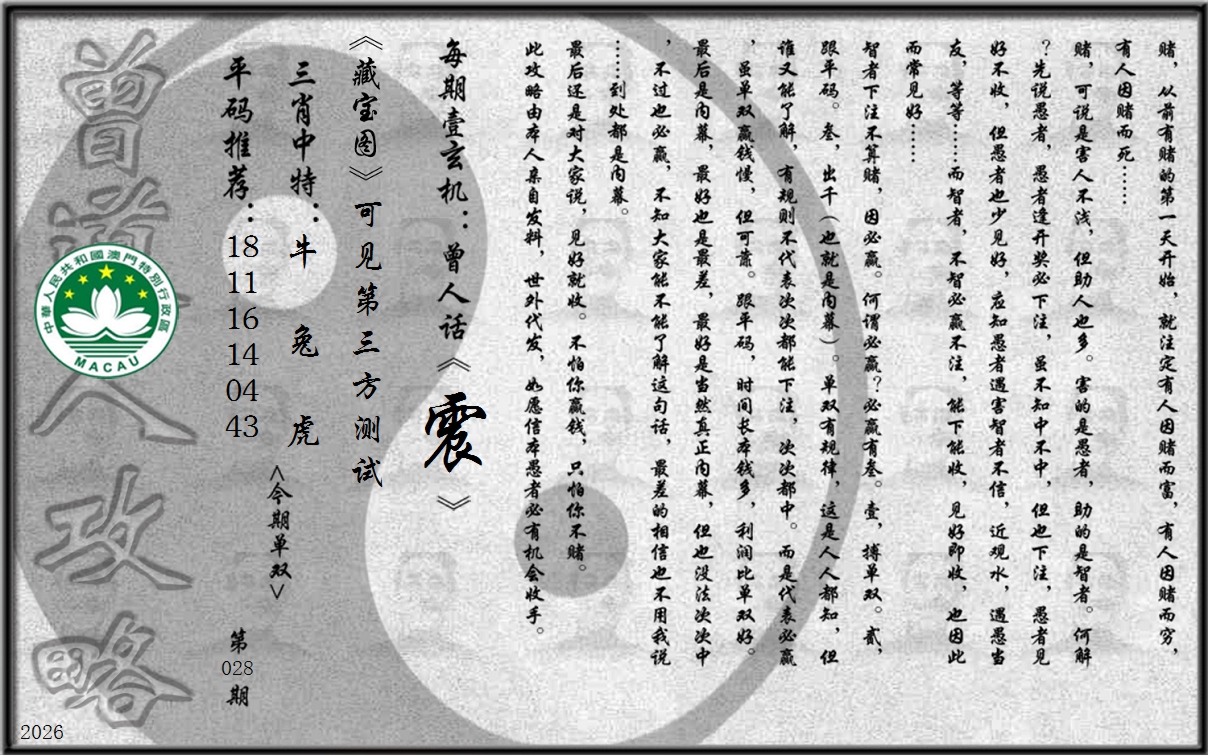 赌，从前有赌的第一天开始，就注定有人因赌而富，有人因赌而穷，
有人因赌而死……
赌，可说是害人不浅，但助人也多。害的是愚者，助的是智者。何解
？先说愚者，愚者逢开奖必下注，虽不知中不中，但也下注，愚者见
好不收，但愚者也少见好，应知愚者遇害智者不信，近观水，遇愚当
友，等等……而智者，不智必赢不注，能下能收，见好即收，也因此
而常见好……
智者下注不算赌，因必赢。何谓必赢？必赢有叁。壹，搏单双。贰，
跟平码。叁，出千（也就是内幕）。单双有规律，这是人人都知，但
谁又能了解，有规则不代表次次都能下注，次次都中。而是代表必赢
，虽单双赢钱慢，但可靠。跟平码，时间长本钱多，利润比单双好。
最后是内幕，最好也是最差，最好是当然真正内幕，但也没法次次中
，不过也必赢，不知大家能不能了解这句话，最差的相信也不用我说
……到处都是内幕。
最后还是对大家说，见好就收。不怕你赢钱，只怕你不赌。
此攻略由本人亲自发料，世外代发，如愿信本愚者必有机会收手。
每期壹玄机：曾人话《震》
《藏宝图》可见第三方测试
三肖中特：牛 兔 虎
<今期单双>
平码推荐：18 11 16 14 04 43
第028期
曾道人攻略
中華人民共和國澳門特別行政區
MACAU
2026